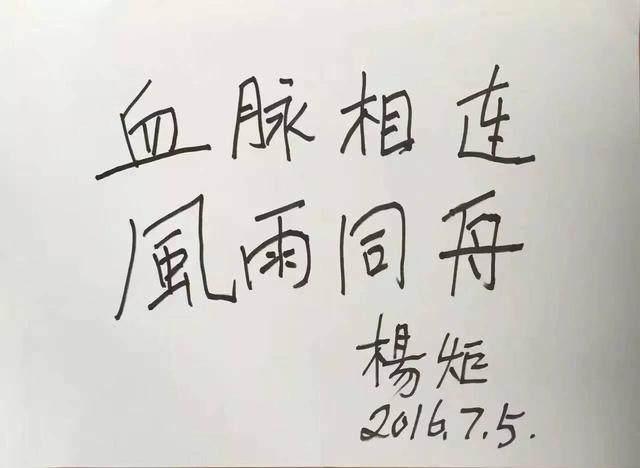 血脉相连
風雨同舟
楊炬
2016.7.5.